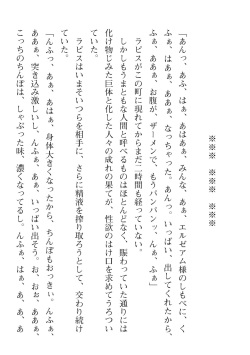 ※※※　※※※　※※※
「あんっ、あふ、はぁ、あはぁぁ、みんな、あぁ、エルゼアム様のしもべに、く
ふぁ、はぁぁ、ああぁ、なっちゃった。あんっ。いっぱい、出してくれたから、
ふぁ、ああぁ、お腹が、ザーメンで、もうパンパンッ、んぁ、ふぁ」
ラビスがこの町に現れてからまだ二時間も経っていない。
しかしもうまともな人間と呼べるものはほとんどなく、賑わっていた通りには
化け物じみた巨体と化した人々の成れの果てが、性欲のはけ口を求めてうろつい
ていた。
ラビスはいまそいつらを相手に、さらに精液を搾り取ろうとして、交わり続け
ていた。
「んふっ、あぁ、あはぁ、身体大きくなったから、ちんぽもおっきぃ。んふぁ、
ああぁ、突き込み激しいし、んふぁ、あぁ、いっぱい出そう。お、おぉ、あああぁ、
こっちのちんぽは、しゃぶった味、濃くなってるし。んふぁ、はぁ、あ、あ